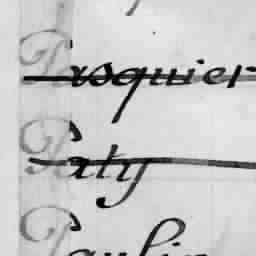 Pasquier
Paty
Paulin